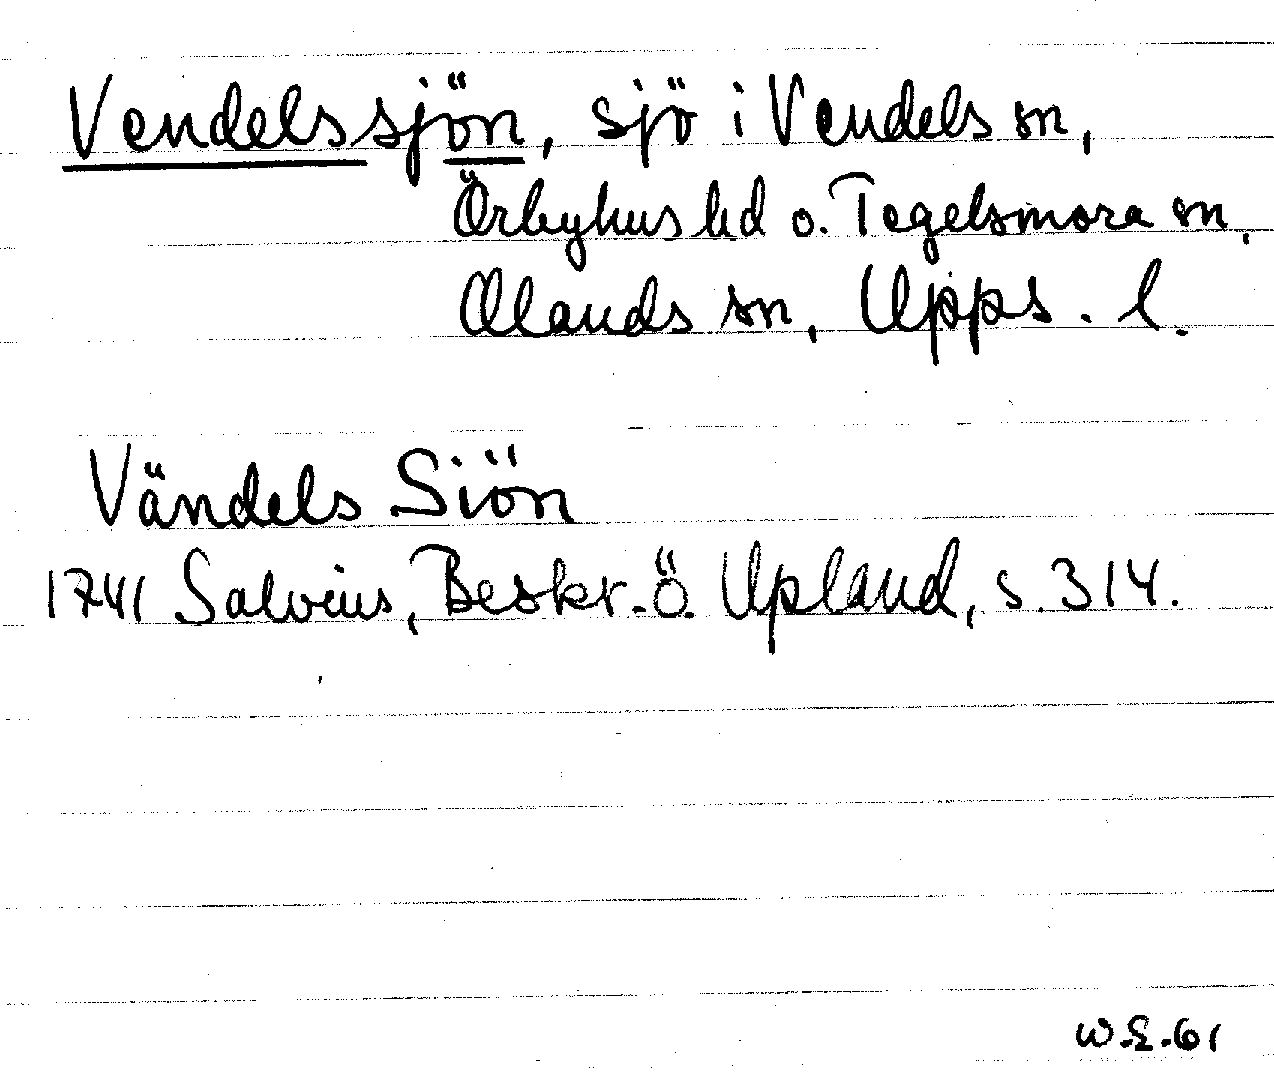 Vendelssjön, sjö i Vendels sn,
Örbyhus hd o. Tegelsmora sn,
Olands sn, Upps. l.
Vändels Siön
1741 Salvius, Beskr. ö. Upland, s. 314.
W.L.61